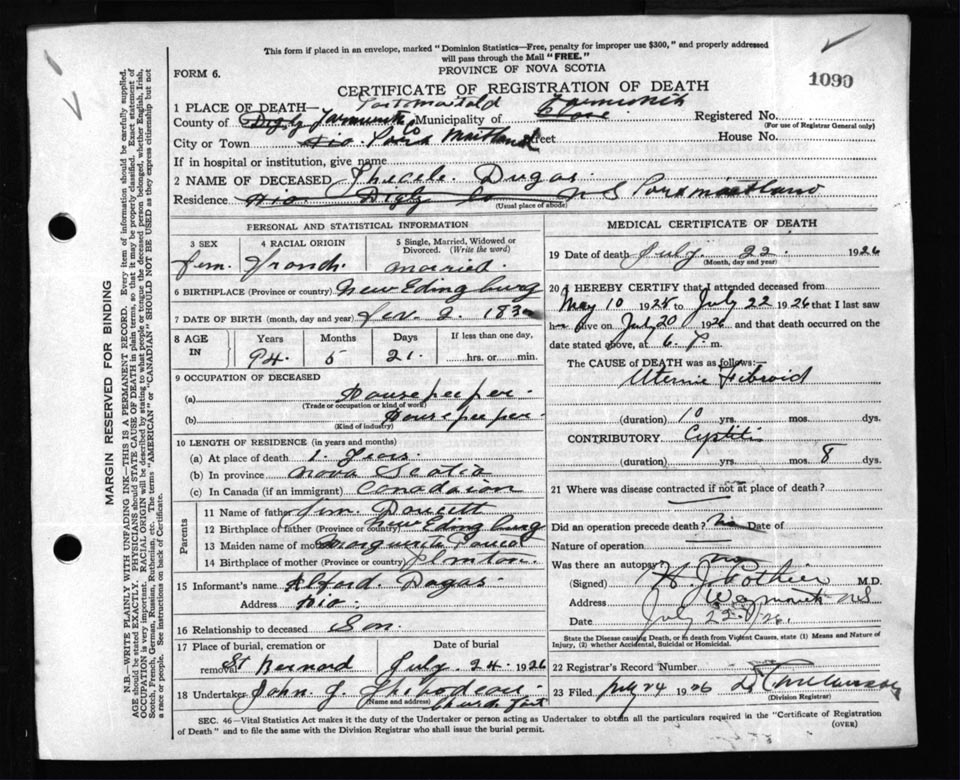 This form if placed in an envelope, marked "Dominion Statistics—Free, penalty for improper use $300," and properly addressed
will pass through the Mail "FREE."
FORM 6.
PROVINCE OF NOVA SCOTIA
1090
CERTIFICATE OF REGISTRATION OF DEATH
1 PLACE OF DEATH—
County of Digby Yarmouth Co Municipality of Clare Yarmouth Registered No.
(For use of Registrar General only)
City or Town Port Maitland Street House No.
If in hospital or institution, give name
2 NAME OF DECEASED Dugas
Residence Digby Co N S Port Maitland
(Usual place of abode)
PERSONAL AND STATISTICAL INFORMATION
3 SEX 4 RACIAL ORIGIN 5 Single, Married, Widowed or Divorced. (Write the word)
fem. French married.
6 BIRTHPLACE (Province or country) New Edingburg
7 DATE OF BIRTH (month, day and year) 2. 183
8 AGE IN Years Months Days If less than one day,
94. 5 21. hrs. or min.
9 OCCUPATION OF DECEASED
(a) Housepeeper
(Trade or occupation or kind of work)
(b) Housepeeper
(Kind of industry)
10 LENGTH OF RESIDENCE (in years and months)
(a) At place of death 1.
(b) In province Nova Scotia
(c) In Canada (if an immigrant) Canadaion
Parents
11 Name of father Doucett
12 Birthplace of father (Province or country) New Edingburg
13 Maiden name of mother Marguerite
14 Birthplace of mother (Province or country) Plmton.
15 Informant's name Alford. Dugas
Address
16 Relationship to deceased Son.
17 Place of burial, cremation or removal Date of burial
St Bernard July. 24. 1926
18 Undertaker John J. Thibodeau
(Name and address) Church
MEDICAL CERTIFICATE OF DEATH
19 Date of death July. 22. 1926
(Month, day and year)
20 I HEREBY CERTIFY that I attended deceased from
May 10 1925 to July 22 1926 that I last saw
her alive on July 20 1926 and that death occurred on the
date stated above, at 6. P. m.
The CAUSE OF DEATH was as follows:—
Uterine Fibroid
(duration) 10 yrs. mos. dys.
CONTRIBUTORY Cystitis
(duration) yrs. mos. 8 dys.
21 Where was disease contracted if not at place of death?
Did an operation precede death? No Date of
Nature of operation
Was there an autopsy? no
(Signed) H. J. Pothier M.D.
Address Weymouth NS
Date July 22. /26.
State the Disease causing Death, or in death from Violent Causes, state (1) Means and Nature of
Injury, (2) whether Accidental, Suicidal or Homicidal.
22 Registrar's Record Number
23 Filed July 24 1926
(Division Registrar)
SEC. 46—Vital Statistics Act makes it the duty of the Undertaker or person acting as Undertaker to obtain all the particulars required in the "Certificate of Registration
of Death" and to file the same with the Division Registrar who shall issue the burial permit. (OVER)
MARGIN RESERVED FOR BINDING
N.B.—WRITE PLAINLY WITH UNFADING INK—THIS IS A PERMANENT RECORD. Every item of information should be carefully supplied.
AGE should be stated EXACTLY. PHYSICIANS should STATE CAUSE OF DEATH in plain terms, so that it may be properly classified. Exact statement of
OCCUPATION is very important. RACIAL ORIGIN will be described by stating to what people or tongue the deceased person belonged, whether English, Irish,
Scotch, French, German, Russian, Ruthenian, etc. The terms "AMERICAN" or "CANADIAN" SHOULD NOT BE USED as they express citizenship but not
a race or people. See instructions on back of Certificate.